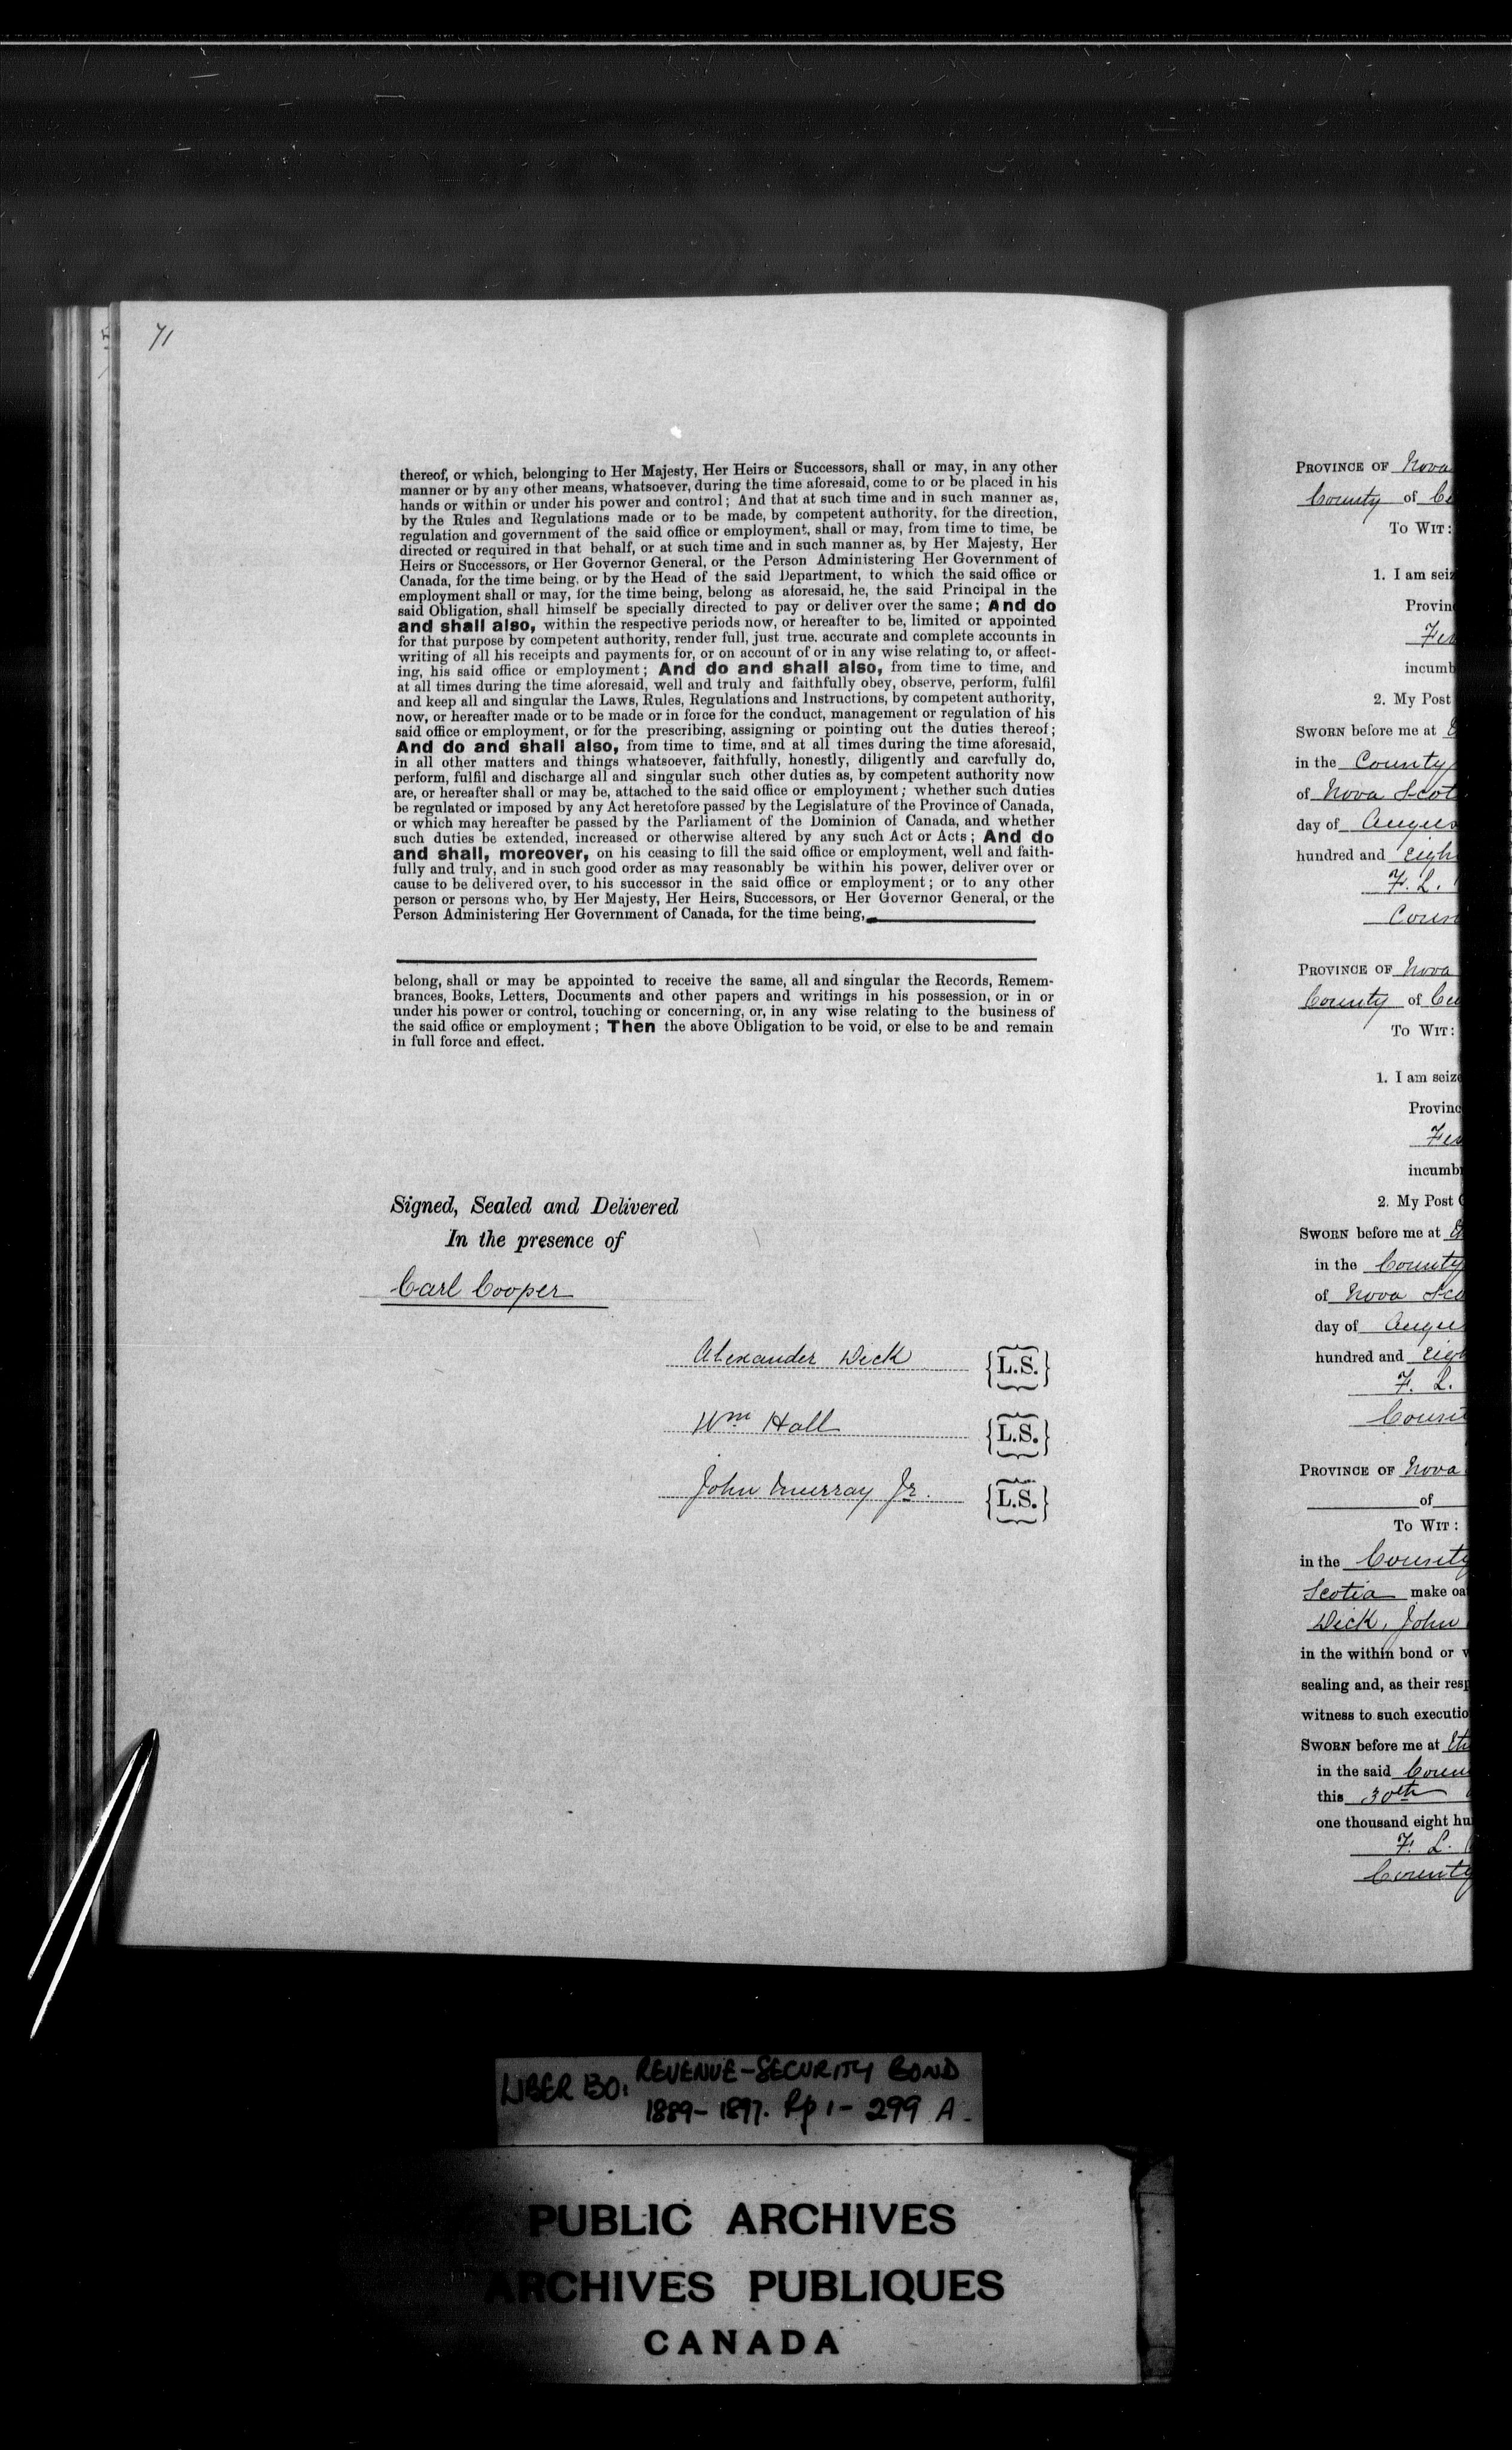 71
thereof, or which, belonging to Her Majesty, Her Heirs or Successors, shall or may, in any other
manner or by any other means, whatsoever, during the time aforesaid, come to or be placed in his
hands or within or under his power and control; And that at such time and in such manner as,
by the Rules and Regulations made or to be made, by competent authority, for the direction,
regulation and government of the said office or employment, shall or may, from time to time, be
directed or required in that behalf, or at such time and in such manner as, by Her Majesty, Her
Heirs or Successors, or Her Governor General, or the Person Administering Her Government of
Canada, for the time being, or by the Head of the said Department, to which the said office or
employment shall or may, for the time being, belong as aforesaid, he, the said Principal in the
said Obligation, shall himself be specially directed to pay or deliver over the same; And do
and shall also, within the respective periods now, or hereafter to be, limited or appointed
for that purpose by competent authority, render full, just true, accurate and complete accounts in
writing of all his receipts and payments for, or on account of or in any wise relating to, or affect-
ing, his said office or employment; And do and shall also, from time to time, and
at all times during the time aforesaid, well and truly and faithfully obey, observe, perform, fulfil
and keep all and singular the Laws, Rules, Regulations and Instructions, by competent authority,
now, or hereafter made or to be made or in force for the conduct, management or regulation of his
said office or employment, or for the prescribing, assigning or pointing out the duties thereof;
And do and shall also, from time to time, and at all times during the time aforesaid,
in all other matters and things whatsoever, faithfully, honestly, diligently and carefully do,
perform, fulfil and discharge all and singular such other duties as, by competent authority now
are, or hereafter shall or may be, attached to the said office or employment; whether such duties
be regulated or imposed by any Act heretofore passed by the Legislature of the Province of Canada,
or which may hereafter be passed by the Parliament of the Dominion of Canada, and whether
such duties be extended, increased or otherwise altered by any such Act or Acts; And do
and shall, moreover, on his ceasing to fill the said office or employment, well and faith-
fully and truly, and in such good order as may reasonably be within his power, deliver over or
cause to be delivered over, to his successor in the said office or employment; or to any other
person or persons who, by Her Majesty, Her Heirs, Successors, or Her Governor General, or the
Person Administering Her Government of Canada, for the time being,
belong, shall or may be appointed to receive the same, all and singular the Records, Remem-
brances, Books, Letters, Documents and other papers and writings in his possession, or in or
under his power or control, touching or concerning, or, in any wise relating to the business of
the said office or employment; Then the above Obligation to be void, or else to be and remain
in full force and effect.
Signed, Sealed and Delivered
In the presence of
Carl Cooper
Alexander Dick {L.S.}
Wm Hall {L.S.}
John Murray Jr. {L.S.}
PROVINCE OF Nova
County of
TO WIT:
1. I am
incumb
2. My Post
SWORN before me at
in the County
of Nova Scot
day of Augus
hundred and eigh
F. L.
Coun
PROVINCE OF Nova
County of
TO WIT:
1. I am
Provinc
incumb
2. My Post
SWORN before me at
in the County
of Nova Sco
day of Augu
hundred and eigh
F. L.
Count
PROVINCE OF Nova
of
TO WIT:
in the County
Scotia make oa
Dick, John
in the within bond or
sealing and, as their resp
witness to such executio
SWORN before me at
in the said Coun
this 30th
one thousand eight hu
F. L.
County
LIBER BO: REVENUE-SECURITY BOND
1889-1897. Pp 1-299 A.
PUBLIC ARCHIVES
ARCHIVES PUBLIQUES
CANADA